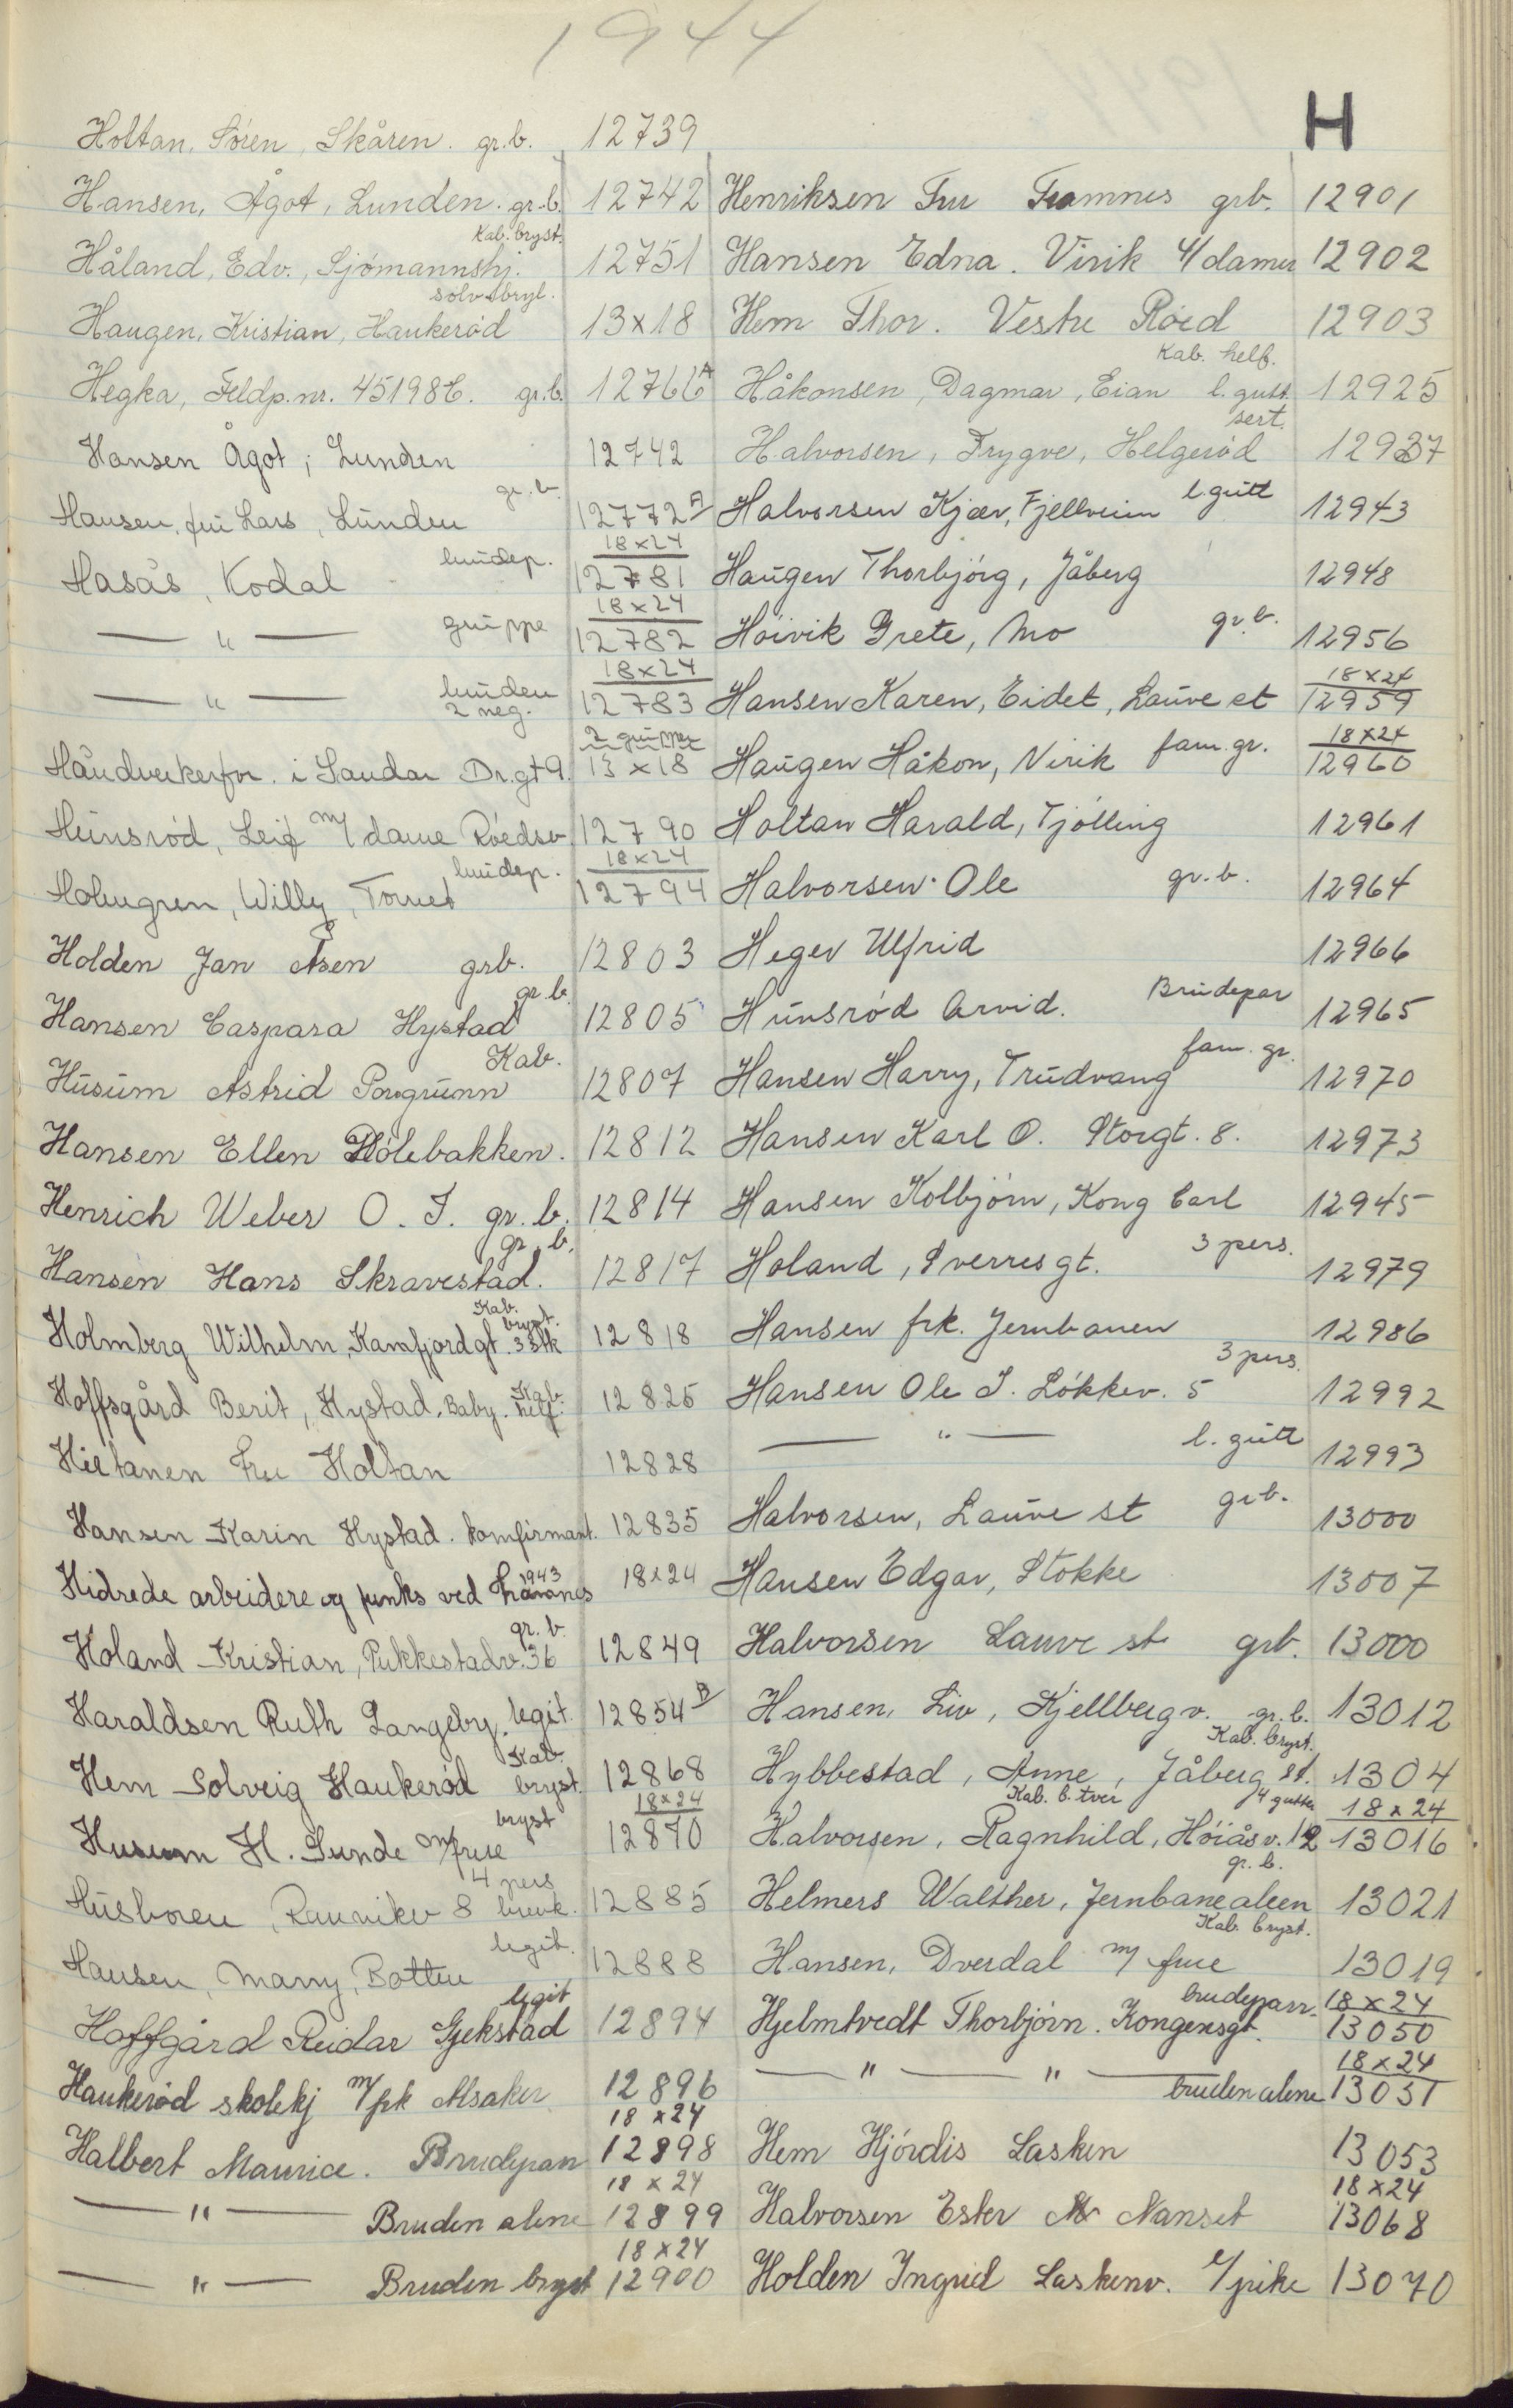 1944
H
Holtan, Søren, Skåren. gr.b. 12739
Hansen, Ågot, Lunden. gr.b. 12742
Kab. bryst.
Håland, Edv., Sjømannshj. 12751
sølvbryl.
Haugen, Kristian, Haukerød 13x18
Hegka, Feldp.nr. 45198E. gr.b. 12766A
Hansen Ågot, Lunden 12742
gr.b.
Hansen, fru Lars, Lunden 12772A
brudep. 18x24
Hasås, Kodal 12781
18x24
— " — gruppe 12782
18x24
— " — bruden 2 neg. 12783
2 grupper
Håndverkerfor. i Sandar Dr.gt 9. 13x18
Hunsrød, Leif m/ dame Røedsv. 12790
brudep. 18x24
Holmgren, Willy, Torvet 12794
Holden Jan Åsen grb. 12803
gr.b.
Hansen Caspara Hystad 12805
Kab.
Husum Astrid Porsgrunn 12807
Hansen Ellen Pølebakken. 12812
Henrich Weber O.T. gr.b. 12814
gr.b.
Hansen Hans Skravestad. 12817
Kab. bryst.
Holmberg Wilhelm, Kamfjordgt. 3 stk 12818
Hoffsgård Berit, Hystad, Baby. Kab. helf. 12825
Hietanen Fru Holtan 12828
Hansen Karin Hystad. konfirmant. 12835
1943
Hidrede arbeidere og funks ved Framnes 18x24
gr.b.
Holand Kristian, Pukkestadv. 36 12849
Haraldsen Ruth Langeby. legit. 12854B
Kab.
Hem Solveig Haukerød bryst. 12868
bryst 18x24
Husum H. Sunde m/frue 12870
4 pers
Husboren, Raunikev 8 brevk. 12885
legit.
Hansen, Marry, Botten 12888
legit
Hoffgård Reidar Gjekstad 12894
Haukerød skolekj m/frk Alsaker 12896
18x24
Halbert Maurice. Brudepar 12898
18x24
— " — Bruden alene 12899
18x24
— " — Bruden bryst 12900
Henriksen Fru Framnes grb. 12901
Hansen Edna. Virik 4/damer 12902
Hem Thor. Vestre Røed 12903
Kab. helf.
Håkonsen, Dagmar, Eian l.gutt. 12925
sert.
Halvorsen, Trygve, Helgerød 12937
Halvorsen Kjær, Fjellveien l.gutt 12943
Haugen Thorbjørg, Jåberg 12948
Høivik Grete, Mo gr.b. 12956
18x24
Hansen Karen, Eidet, Lauve et 12959
18x24
Haugen Håkon, Virik fam.gr. 12960
Holtan Harald, Tjølling 12961
Halvorsen Ole gr.b. 12964
Heger Ulfrid 12966
Hunsrød Arvid. Brudepar 12965
fam. gr.
Hansen Harry, Trudvang 12970
Hansen Karl O. Storgt. 8. 12973
Hansen Kolbjørn, Kong Carl 12945
Holand, Sverresgt. 3 pers. 12979
Hansen frk. Jernbanen 12986
3 pers.
Hansen Ole J. Løkkev. 5 12992
— " — l. gutt 12993
Halvorsen, Lauve st grb. 13000
Hansen Edgar, Stokke 13007
Halvorsen Lauve st grb. 13000
Hansen, Liv, Kjellbergv. gr.b. 13012
Kab. bryst.
Hybbestad, Anne, Jåberg st. 1304
Kab. b. tver 4 gutter 18x24
Halvorsen, Ragnhild, Høiåsv. 12 13016
gr.b.
Helmers Walther, Jernbanealeen 13021
Kab. bryst.
Hansen, Dverdal m/ frue 13019
brudeparr. 18x24
Hjelmtvedt Thorbjørn. Kongensgt. 13050
18x24
— " — " — bruden alene 13051
Hem Hjørdis Lasken 13053
18x24
Halvorsen Ester Nanset 13068
Holden Ingrid Laskenv. 1/pike 13070